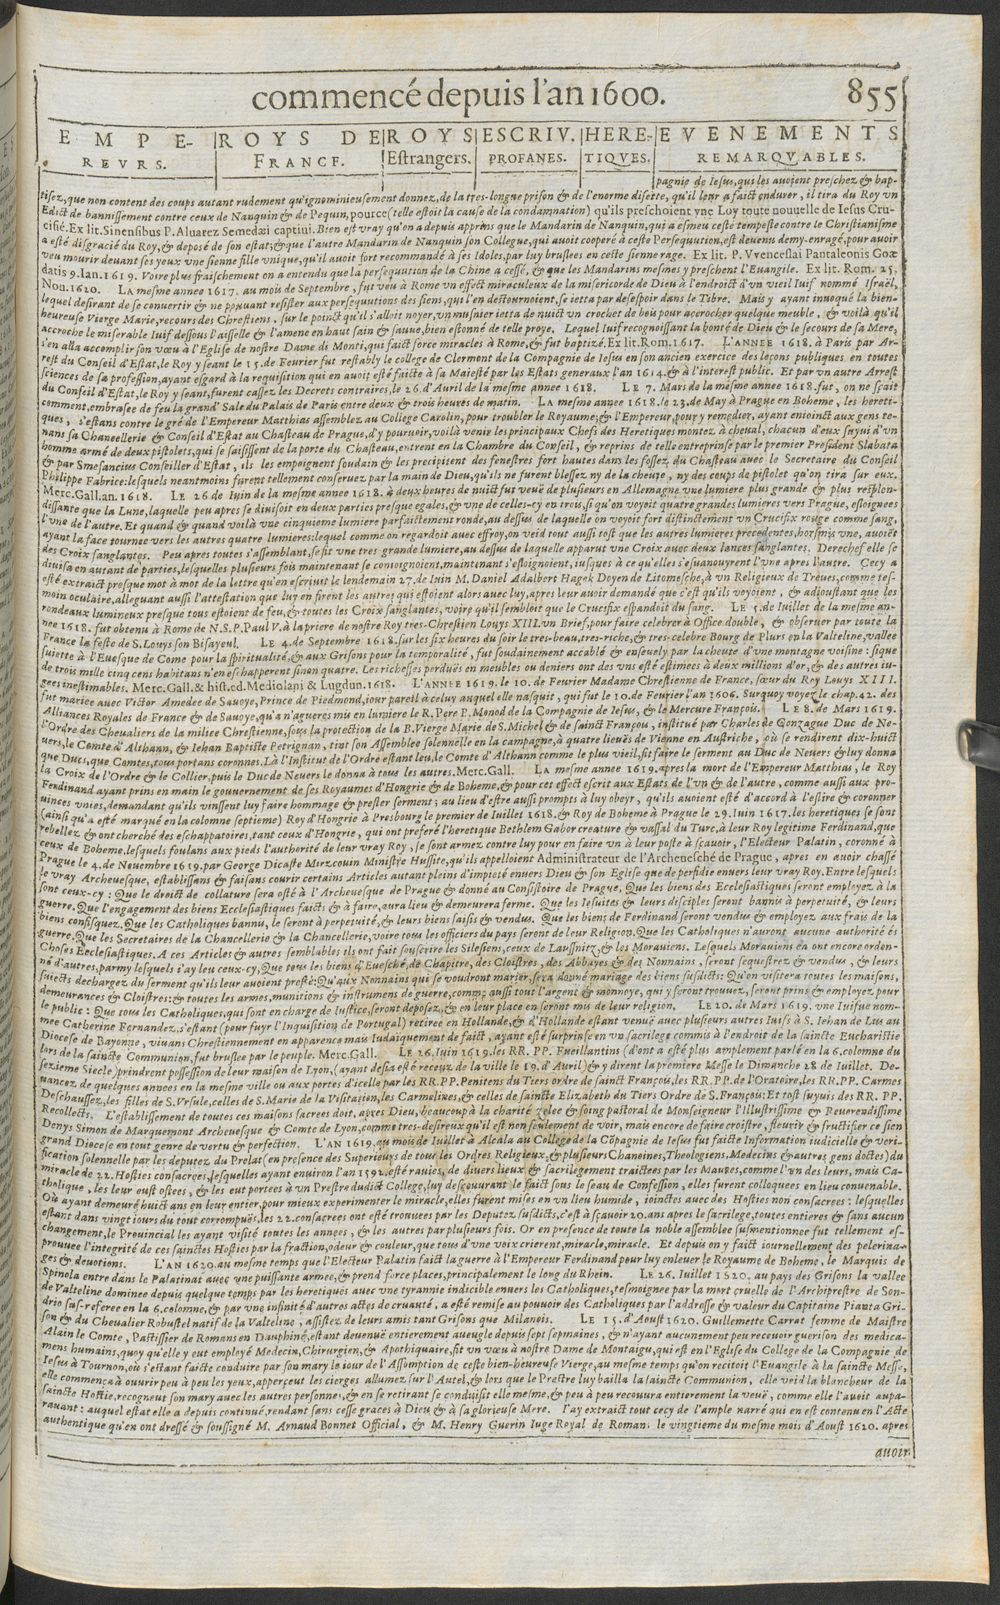 commencé depuis l'an 1600. 855
EMPE- | ROYS DE | ROYS | ESCRIV. | HERE- | EVENEMENTS
REVRS. | FRANCE. | Estrangers. | PROFANES. | TIQVES. | REMARQVABLES.
pagnie de Iesus, qui les auoient preschez & bap-
tisez, que non content des coups autant rudement qu'ignominieusement donnez, de la tres-longue prison & de l'enorme disette, qu'il leur a faict endurer, il tira du Roy vn
Edict de bannissement contre ceux de Nanquin & de Pequin, pource (telle estoit la cause de la condamnation) qu'ils preschoient vne Loy toute nouuelle de Iesus Cru-
cifié. Ex lit. Sinensibus P. Aluarez Semedaei captiui. Bien est vray qu'on a depuis appris que le Mandarin de Nanquin, qui a esmeu ceste tempeste contre le Christianisme
a esté disgracié du Roy, & deposé de son estat; & que l'autre Mandarin de Nanquin son Collegue, qui auoit cooperé à ceste Persequution, est deuenu demy-enragé, pour auoir
veu mourir deuant ses yeux vne sienne fille vnique, qu'il auoit fort recommandé à ses Idoles, par luy bruslees en ceste sienne rage. Ex lit. P. Vvencessai Pantaleonis Goæ
datis 9. Ian. 1619. Voire plus fraischement on a entendu que la persequution de la Chine a cessé, & que les Mandarins mesmes y preschent l'Euangile. Ex lit. Rom. 25.
Nou. 1620. LA mesme annee 1617. au mois de Septembre, fut veu à Rome vn effect miraculeux de la misericorde de Dieu à l'endroict d'vn vieil Iuif nommé Israël,
lequel desirant de se conuertir & ne pouuant resister aux persequutions des siens, qui l'en destournoient, se ietta par desespoir dans le Tibre. Mais y ayant inuoqué la bien-
heureuse Vierge Marie, recours des Chrestiens, sur le poinct qu'il s'alloit noyer, vn musnier ietta de nuict vn crochet de bois pour accrocher quelque meuble, & voilà qu'il
accroche le miserable Iuif dessous l'aisselle & l'amene en haut sain & sauue, bien estonné de telle proye. Lequel Iuif recognoissant la bonté de Dieu & le secours de sa Mere,
s'en alla accomplir son vœu à l'Eglise de nostre Dame di Monti, qui faict force miracles à Rome, & fut baptizé. Ex lit. Rom. 1617. L'ANNEE 1618. à Paris par Ar-
rest du Conseil d'Estat, le Roy y seant le 15. de Feurier fut restably le college de Clermont de la Compagnie de Iesus en son ancien exercice des leçons publiques en toutes
sciences de sa profession, ayant esgard à la requisition qui en auoit esté faicte à sa Majesté par les Estats generaux l'an 1614. & à l'interest public. Et par vn autre Arrest
du Conseil d'Estat, le Roy y seant, furent cassez les Decrets contraires, le 26. d'Auril de la mesme annee 1618. LE 7. Mars de la mesme annee 1618. fut, on ne sçait
comment, embrasee de feu la grand' Sale du Palais de Paris entre deux & trois heures de matin. LA mesme annee 1618. le 23. de May à Prague en Boheme, les hereti-
ques, s'estans contre le gré de l'Empereur Matthias assemblez au College Carolin, pour troubler le Royaume; & l'Empereur, pour y remedier, ayant enioinct aux gens te-
nans sa Chancellerie & Conseil d'Estat au Chasteau de Prague, d'y pouruoir, voilà venir les principaux Chefs des Heretiques montez à cheual, chacun d'eux suyui d'vn
homme armé de deux pistolets, qui se saisissent de la porte du Chasteau, entrent en la Chambre du Conseil, & reprins de telle entreprinse par le premier President Slabata
& par Smesancius Conseiller d'Estat, ils les empoignent soudain & les precipitent des fenestres fort hautes dans les fossez du Chasteau auec le Secretaire du Conseil
Philippe Fabrice: lesquels neantmoins furent tellement conseruez par la main de Dieu, qu'ils ne furent blessez ny de la cheute, ny des coups de pistolet qu'on tira sur eux.
Merc. Gall. an. 1618. LE 26 de Iuin de la mesme annee 1618. à deux heures de nuict fut veuë de plusieurs en Allemagne vne lumiere plus grande & plus resplen-
dissante que la Lune, laquelle peu apres se diuisoit en deux parties presque egales, & vne de celles-cy en trou, si qu'on voyoit quatre grandes lumieres vers Prague, esloignees
l'vne de l'autre. Et quand & quand voilà vne cinquieme lumiere parfaictement ronde, au dessus de laquelle on voyoit fort distinctement vn Crucifix rouge comme sang,
ayant la face tournee vers les autres quatre lumieres: lequel comme on regardoit auec effroy, on veid tout aussi tost que les autres lumieres precedentes, horsmis vne, auoiēt
des Croix sanglantes. Peu apres toutes s'assemblant, se fit vne tres grande lumiere, au dessus de laquelle apparut vne Croix auec deux lances sanglantes. Derechef elle se
diuisa en autant de parties, lesquelles plusieurs fois maintenant se conioignoient, maintenant s'esloignoient, iusques à ce qu'elles s'esuanouyrent l'vne apres l'autre. Cecy a
esté extraict presque mot à mot de la lettre qu'en escriuit le lendemain 27. de Iuin M. Daniel Adalbert Hagek Doyen de Litomesche, à vn Religieux de Treues, comme tes-
moin oculaire, alleguant aussi l'attestation que luy en firent les autres qui estoient alors auec luy, apres leur auoir demandé que c'est qu'ils voyoient, & adioustant que les
rondeaux lumineux presque tous estoient de feu, & toutes les Croix sanglantes, voire qu'il sembloit que le Crucifix espandoit du sang. LE 5. de Iuillet de la mesme an-
nee 1618. fut obtenu à Rome de N.S.P. Paul V. à la priere de nostre Roy tres-Chrestien Louys XIII. vn Brief, pour faire celebrer à Office double, & obseruer par toute la
France la feste de S. Louys son Bisayeul. LE 4. de Septembre 1618. sur les six heures du soir le tres-beau, tres-riche, & tres-celebre Bourg de Plurs en la Valteline, vallee
suiette à l'Euesque de Come pour la spiritualité, & aux Grisons pour la temporalité, fut soudainement accablé & enseuely par la cheute d'vne montagne voisine: si que
de trois mille cinq cens habitans n'en eschapperent sinon quatre. Les richesses perduës en meubles ou deniers ont des vns esté estimees à deux millions d'or, & des autres iu-
gees inestimables. Merc. Gall. & hist. ed. Mediolani & Lugdun. 1618. L'ANNEE 1619. le 10. de Feurier Madame Chrestienne de France, sœur du Roy Louys XIII.
fut mariee auec Victor Amedee de Sauoye, Prince de Piedmond, iour pareil à celuy auquel elle nasquit, qui fut le 10. de Feurier l'an 1606. Surquoy voyez le chap. 42. des
Alliances Royales de France & de Sauoye, qu'a n'agueres mis en lumiere le R. Pere P. Monod de la Compagnie de Iesus, & le Mercure François. LE 8. de Mars 1619.
l'Ordre des Cheualiers de la milice Chrestienne, sous la protection de la B. Vierge Marie de S. Michel & de sainct François, institué par Charles de Gonzague Duc de Ne-
uers, le Comte d'Althann, & Iehan Baptiste Petrignan, tint son Assemblee solennelle en la campagne, à quatre lieuës de Vienne en Austriche, où se rendirent dix-huict
que Ducs, que Comtes, tous portans coronnes. Là l'Institut de l'Ordre estant leu, le Comte d'Althann comme le plus vieil, fit faire le serment au Duc de Neuers & luy donna
la Croix de l'Ordre & le Collier, puis le Duc de Neuers le donna à tous les autres. Merc. Gall. LA mesme annee 1619. apres la mort de l'Empereur Matthias, le Roy
Ferdinand ayant prins en main le gouuernement de ses Royaumes d'Hongrie & de Boheme, & pour cet effect escrit aux Estats de l'vn & de l'autre, comme aussi aux pro-
uinces vnies, demandant qu'ils vinssent luy faire hommage & prester serment; au lieu d'estre aussi prompts à luy obeyr, qu'ils auoient esté d'accord à l'eslire & coronner
(ainsi qu'a esté marqué en la colomne septieme) Roy d'Hongrie à Presbourg le premier de Iuillet 1618. & Roy de Boheme à Prague le 29. Iuin 1617. les heretiques se sont
rebellez & ont cherché des eschappatoires, tant ceux d'Hongrie, qui ont preferé l'heretique Bethlem Gabor creature & vassal du Turc, à leur Roy legitime Ferdinand, que
ceux de Boheme, lesquels foulans aux pieds l'authorité de leur vray Roy, se sont armez contre luy pour en faire vn à leur poste à sçauoir, l'Electeur Palatin, coronné à
Prague le 4. de Nouembre 1619. par George Dicaste Mirzcouin Ministre Hussite, qu'ils appelloient Administrateur de l'Archeuesché de Prague, apres en auoir chassé
le vray Archeuesque, establissans & faisans courir certains Articles autant pleins d'impieté enuers Dieu & son Eglise que de perfidie enuers leur vray Roy. Entre lesquels
sont ceux-cy: Que le droict de collature sera osté à l'Archeuesque de Prague & donné au Consistoire de Prague, Que les biens des Ecclesiastiques seront employez à la
guerre. Que l'engagement des biens Ecclesiastiques faicts & à faire, aura lieu & demeurera ferme. Que les Iesuites & leurs disciples seront bannis à perpetuité, & leurs
biens confisquez. Que les Catholiques bannis, le seront à perpetuité, & leurs biens saisis & vendus. Que les biens de Ferdinand seront vendus & employez aux frais de la
guerre. Que les Secretaires de la Chancellerie & la Chancellerie, voire tous les officiers du pays seront de leur Religion. Que les Catholiques n'auront aucune authorité és
Choses Ecclesiastiques. A ces Articles & autres semblables ils ont fait souscrire les Silesiens, ceux de Laussnitz, & les Morauiens. Lesquels Morauiens en ont encore ordon-
né d'autres, parmy lesquels i'ay leu ceux-cy, Que tous les biens d'Euesché, de Chapitre, des Cloistres, des Abbayes & des Nonnains, seront sequestrez & vendus, & leurs
suiects dechargez du serment qu'ils leur auoient presté: Qu'aux Nonnains qui se voudront marier, sera donné mariage des biens susdicts: Qu'on visitera toutes les maisons,
demeurances & Cloistres: & toutes les armes, munitions & instrumens de guerre, comme aussi tout l'argent & monnoye, qui y seront trouuez, seront prins & employez pour
le public: Que tous les Catholiques, qui sont en charge de Iustice, seront deposez, & en leur place en seront mis de leur religion. LE 20. de Mars 1619. vne Iuifue nom-
mee Catherine Fernandez, s'estant (pour fuyr l'Inquisition de Portugal) retiree en Hollande, & d'Hollande estant venuë auec plusieurs autres Iuifs à S. Iehan de Lus au
Diocese de Bayonne, viuans Chrestiennement en apparence mais Iudaïquement de faict, ayant esté surprinse en vn sacrilege commis à l'endroit de la saincte Eucharistie
lors de la saincte Communion, fut bruslee par le peuple. Merc. Gall. LE 26. Iuin 1619. les RR. PP. Fueillantins (d'ont a esté plus amplement parlé en la 6. colomne du
sezieme Siecle) prindrent possession de leur maison de Lyon, (ayant desia esté receuz de la ville le 19. d'Auril) & y dirent la premiere Messe le Dimanche 28 de Iuillet. De-
uancez de quelques annees en la mesme ville ou aux portes d'icelle par les RR. PP. Penitens du Tiers ordre de sainct François, les RR. PP. de l'Oratoire, les RR. PP. Carmes
Deschaussez, les filles de S. Vrsule, celles de S. Marie de la Visitation, les Carmelines, & celles de saincte Elizabeth du Tiers Ordre de S. François: Et tost suyuis des RR. PP.
Recollects. L'establissement de toutes ces maisons sacrees doit, apres Dieu, beaucoup à la charité zelee & soing pastoral de Monseigneur l'Illustrissime & Reuerendissime
Denys Simon de Marquemont Archeuesque & Comte de Lyon, comme tres-desireux qu'il est non seulement de voir, mais encore de faire croistre, fleurir & fructifier ce sien
grand Diocese en tout genre de vertu & perfection. L'AN 1619. au mois de Iuillet à Alcala au College de la Cōpagnie de Iesus fut faicte Information iudicielle & veri-
fication solennelle par les deputez du Prelat (en presence des Superieurs de tous les Ordres Religieux, & plusieurs Chanoines, Theologiens, Medecins & autres gens doctes) du
miracle de 22. Hosties consacrees, lesquelles ayant enuiron l'an 1592. esté rauies, de diuers lieux & sacrilegement traictees par les Maures, comme l'vn des leurs, mais Ca-
tholique, les leur eust ostees, & les eut portees à vn Prestre dudict College, luy descouurant le faict sous le seau de Confession, elles furent colloquees en lieu conuenable.
Où ayant demeuré huict ans en leur entier, pour mieux experimenter le miracle, elles furent mises en vn lieu humide, ioinctes auec des Hosties non consacrees: lesquelles
estant dans vingt iours du tout corrompuës, les 22. consacrees ont esté trouuees par les Deputez susdicts, c'est à sçauoir 20. ans apres le sacrilege, toutes entieres & sans aucun
changement, le Prouincial les ayant visité toutes les annees, & les autres par plusieurs fois. Or en presence de toute la noble assemblee susmentionnee fut tellement es-
prouuee l'integrité de ces sainctes Hosties par la fraction, odeur & couleur, que tous d'vne voix crierent, miracle, miracle. Et depuis on y faict iournellement des pelerina-
ges & deuotions. L'AN 1620. au mesme temps que l'Electeur Palatin faict la guerre à l'Empereur Ferdinand pour luy enleuer le Royaume de Boheme, le Marquis de
Spinola entre dans le Palatinat auec vne puissante armee, & prend force places, principalement le long du Rhein. LE 26. Iuillet 1620. au pays des Grisons la vallee
de Valteline dominee depuis quelque temps par les heretiques auec vne tyrannie indicible enuers les Catholiques, tesmoignee par la mort cruelle de l'Archiprestre de Son-
drio sus-referee en la 6. colomne, & par vne infinité d'autres actes de cruauté, a esté remise au pouuoir des Catholiques par l'addresse & valeur du Capitaine Pianta Gri-
son & du Cheualier Robustel natif de la Valteline, assistez de leurs amis tant Grisons que Milanois. LE 15. d'Aoust 1620. Guillemette Carrot femme de Maistre
Alain le Comte, Pastissier de Romans en Dauphiné, estant deuenuë entierement aueugle depuis sept sepmaines, & n'ayant aucunement peu receuoir guerison des medica-
mens humains, quoy qu'elle y eut employé Medecin, Chirurgien, & Apothiquaire, fit vn vœu à nostre Dame de Montaigu, qui est en l'Eglise du College de la Compagnie de
Iesus à Tournon, où s'estant faicte conduire par son mary le iour de l'Assomption de ceste bien-heureuse Vierge, au mesme temps qu'on recitoit l'Euangile à la saincte Messe,
elle commença à ouurir peu à peu les yeux, apperçeut les cierges allumez sur l'Autel, & lors que le Prestre luy bailla la saincte Communion, elle veid la blancheur de la
saincte Hostie, recogneut son mary auec les autres personnes, & en se retirant se conduisit elle mesme, & peu à peu recouura entierement la veuë, comme elle l'auoit aupa-
rauant: auquel estat elle a depuis continué, rendant sans cesse graces à Dieu & à sa glorieuse Mere. I'ay extraict tout cecy de l'ample narré qui en est contenu en l'Acte
authentique qu'en ont dressé & soussigné M. Arnaud Bonnet Official, & M. Henry Guerin Iuge Royal de Roman. le vingtieme du mesme mois d'Aoust 1620. apres
auoir